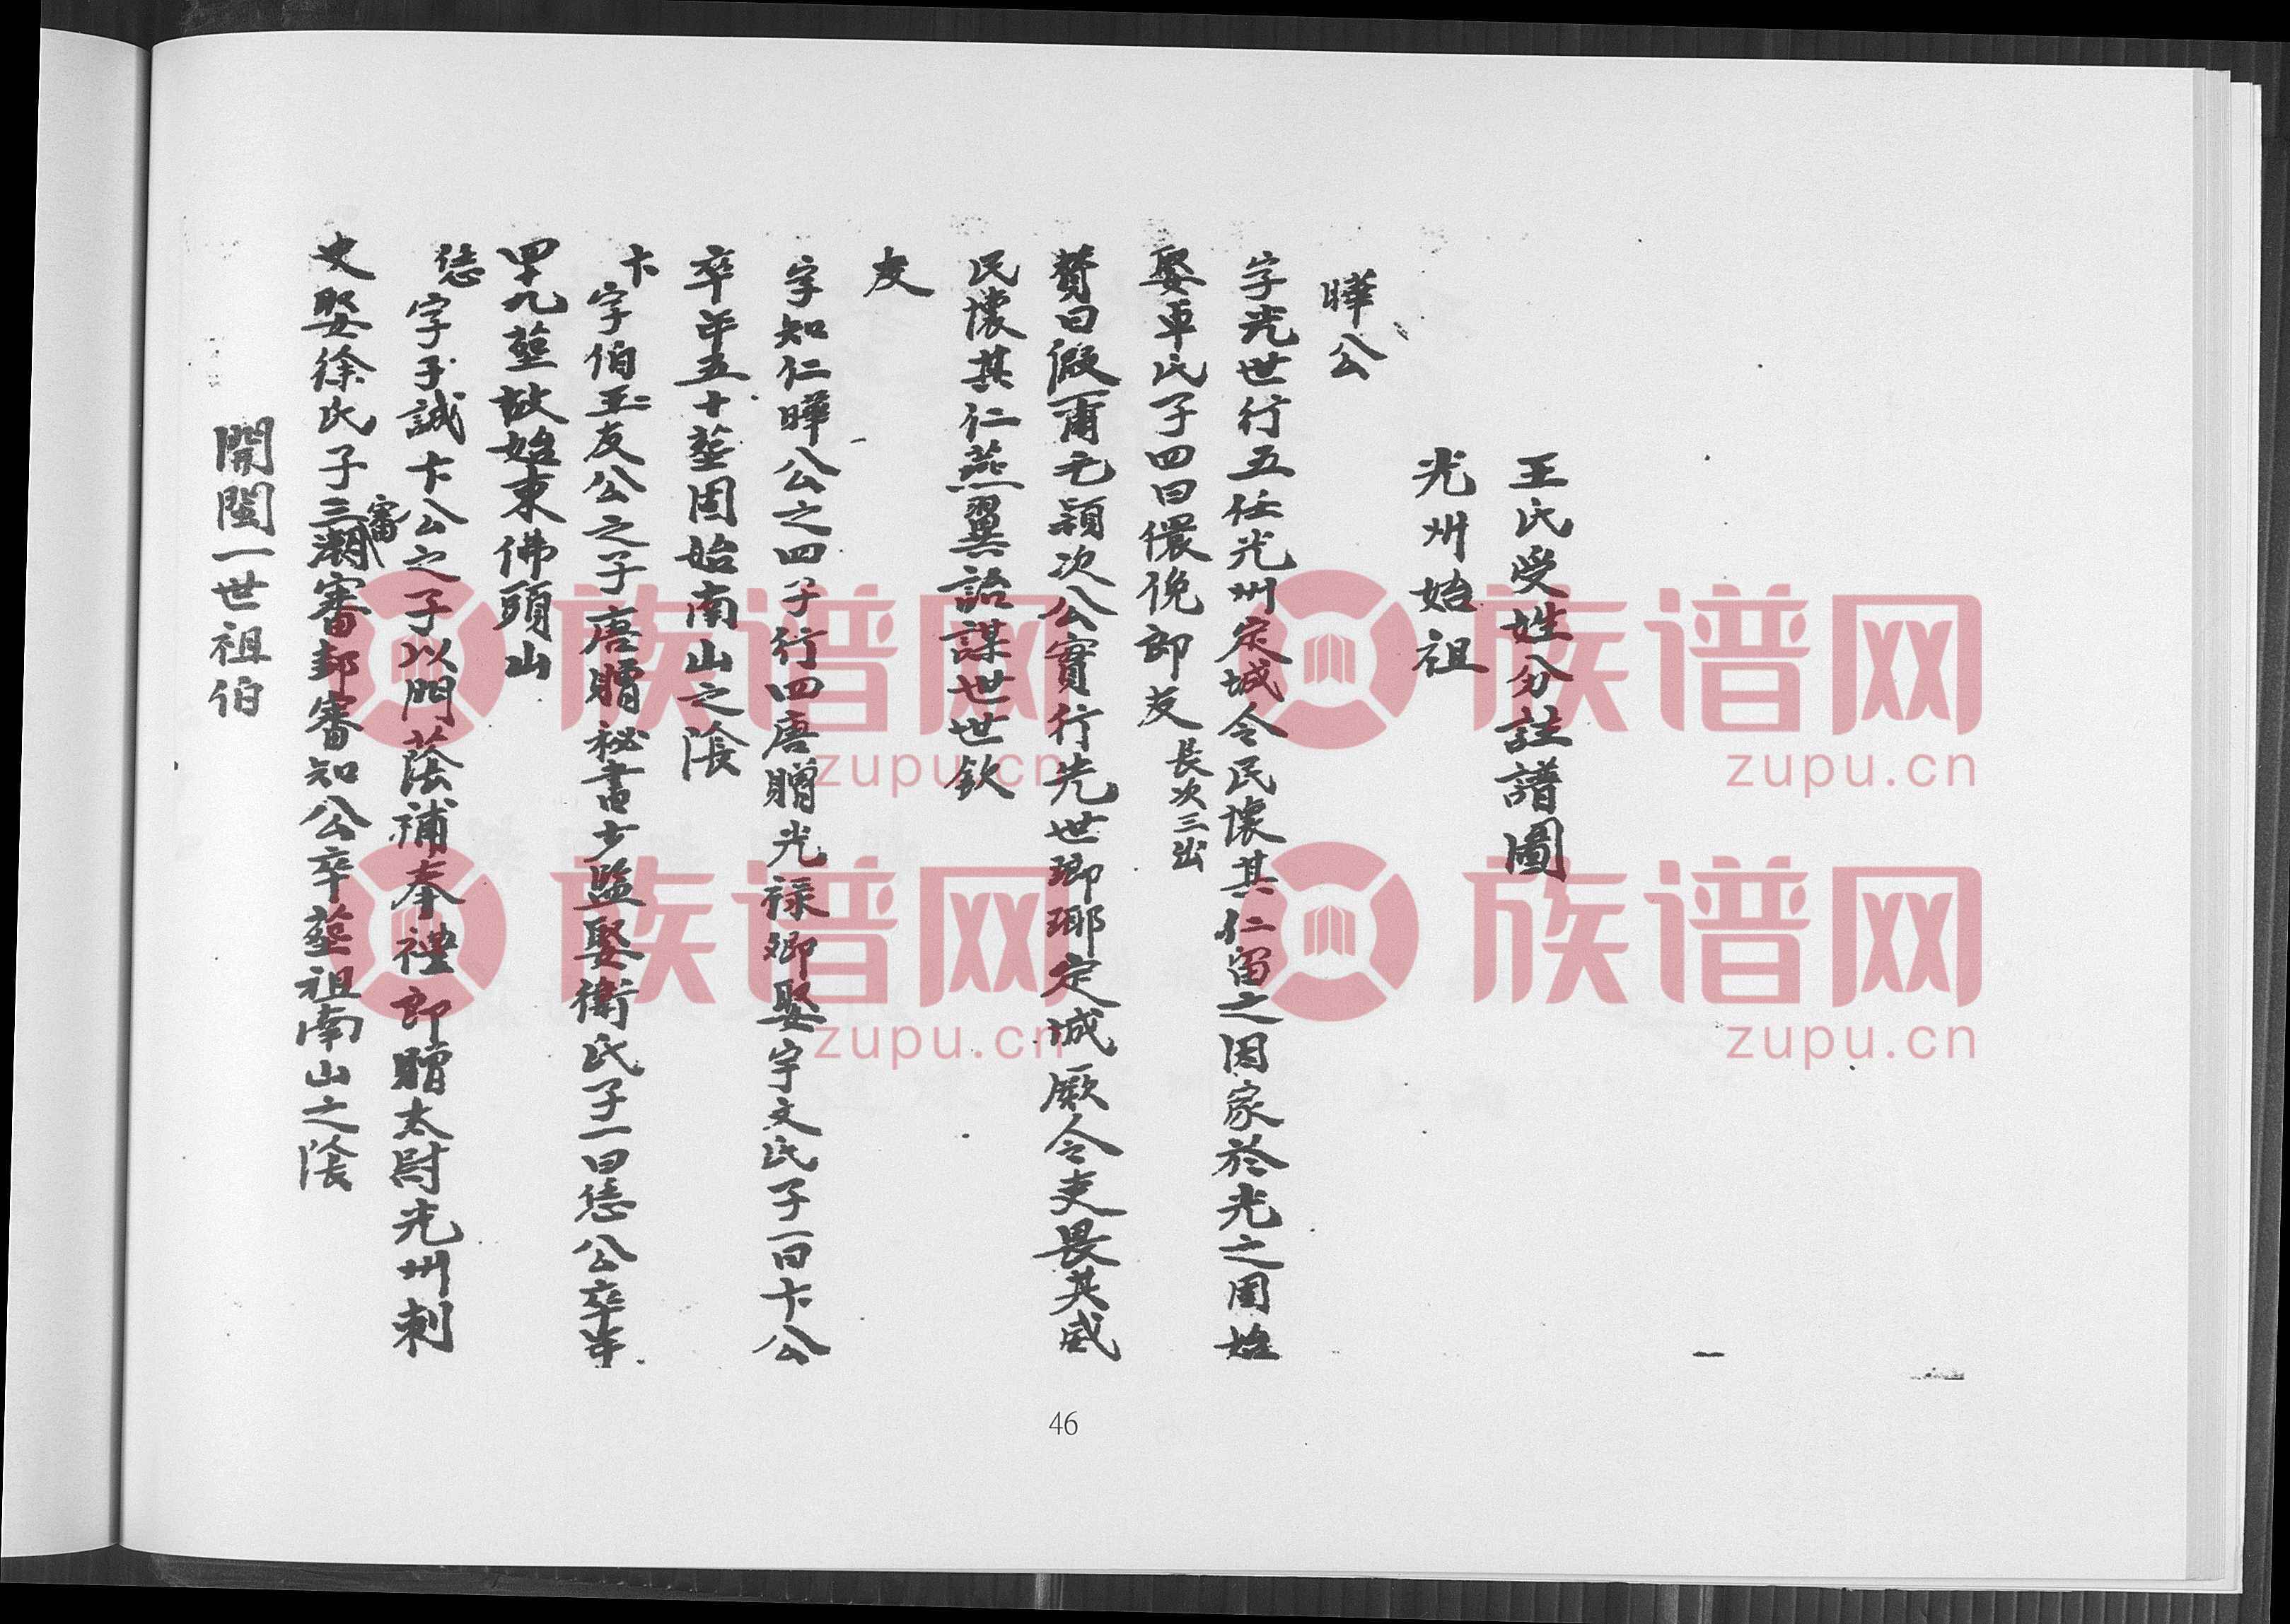 王氏受姓分註譜圖
光州始祖
曄公
字光世行五任光州定城令民懷其仁留之因家於光之固始
娶車氏子四曰儇俛郎友長次三出
贊曰假爾毛穎次公實行光世瑯琊定城厥令吏畏其威
民懷其仁燕翼詒謀世世欽
友
字知仁曄公之四子行四唐贈光祿卿娶宇文氏子一曰卞公
卒年五十塟固始南山之陰
卞
字伯玉友公之子唐贈秘書少監娶衛氏子一曰恁公卒年
四十九塟故始東佛頭山
恁
字子誠卞公之子以門蔭補奉禮郎贈太尉光州刺
史娶徐氏子三潮審邽審知公卒塟祖南山之陰
審
開閩一世祖伯
46
族谱网
zupu.cn
族谱网
zupu.cn
族谱网
zupu.cn
族谱网
zupu.cn